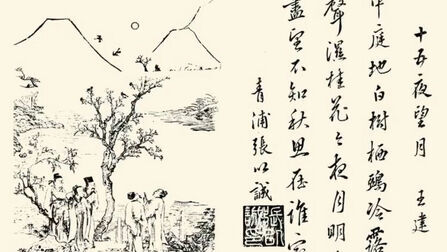 十五夜望月 王建
中庭地白樹栖鴉冷露
聲濕桂花今夜月明
盡望不知秋思在誰家
青浦張以誠